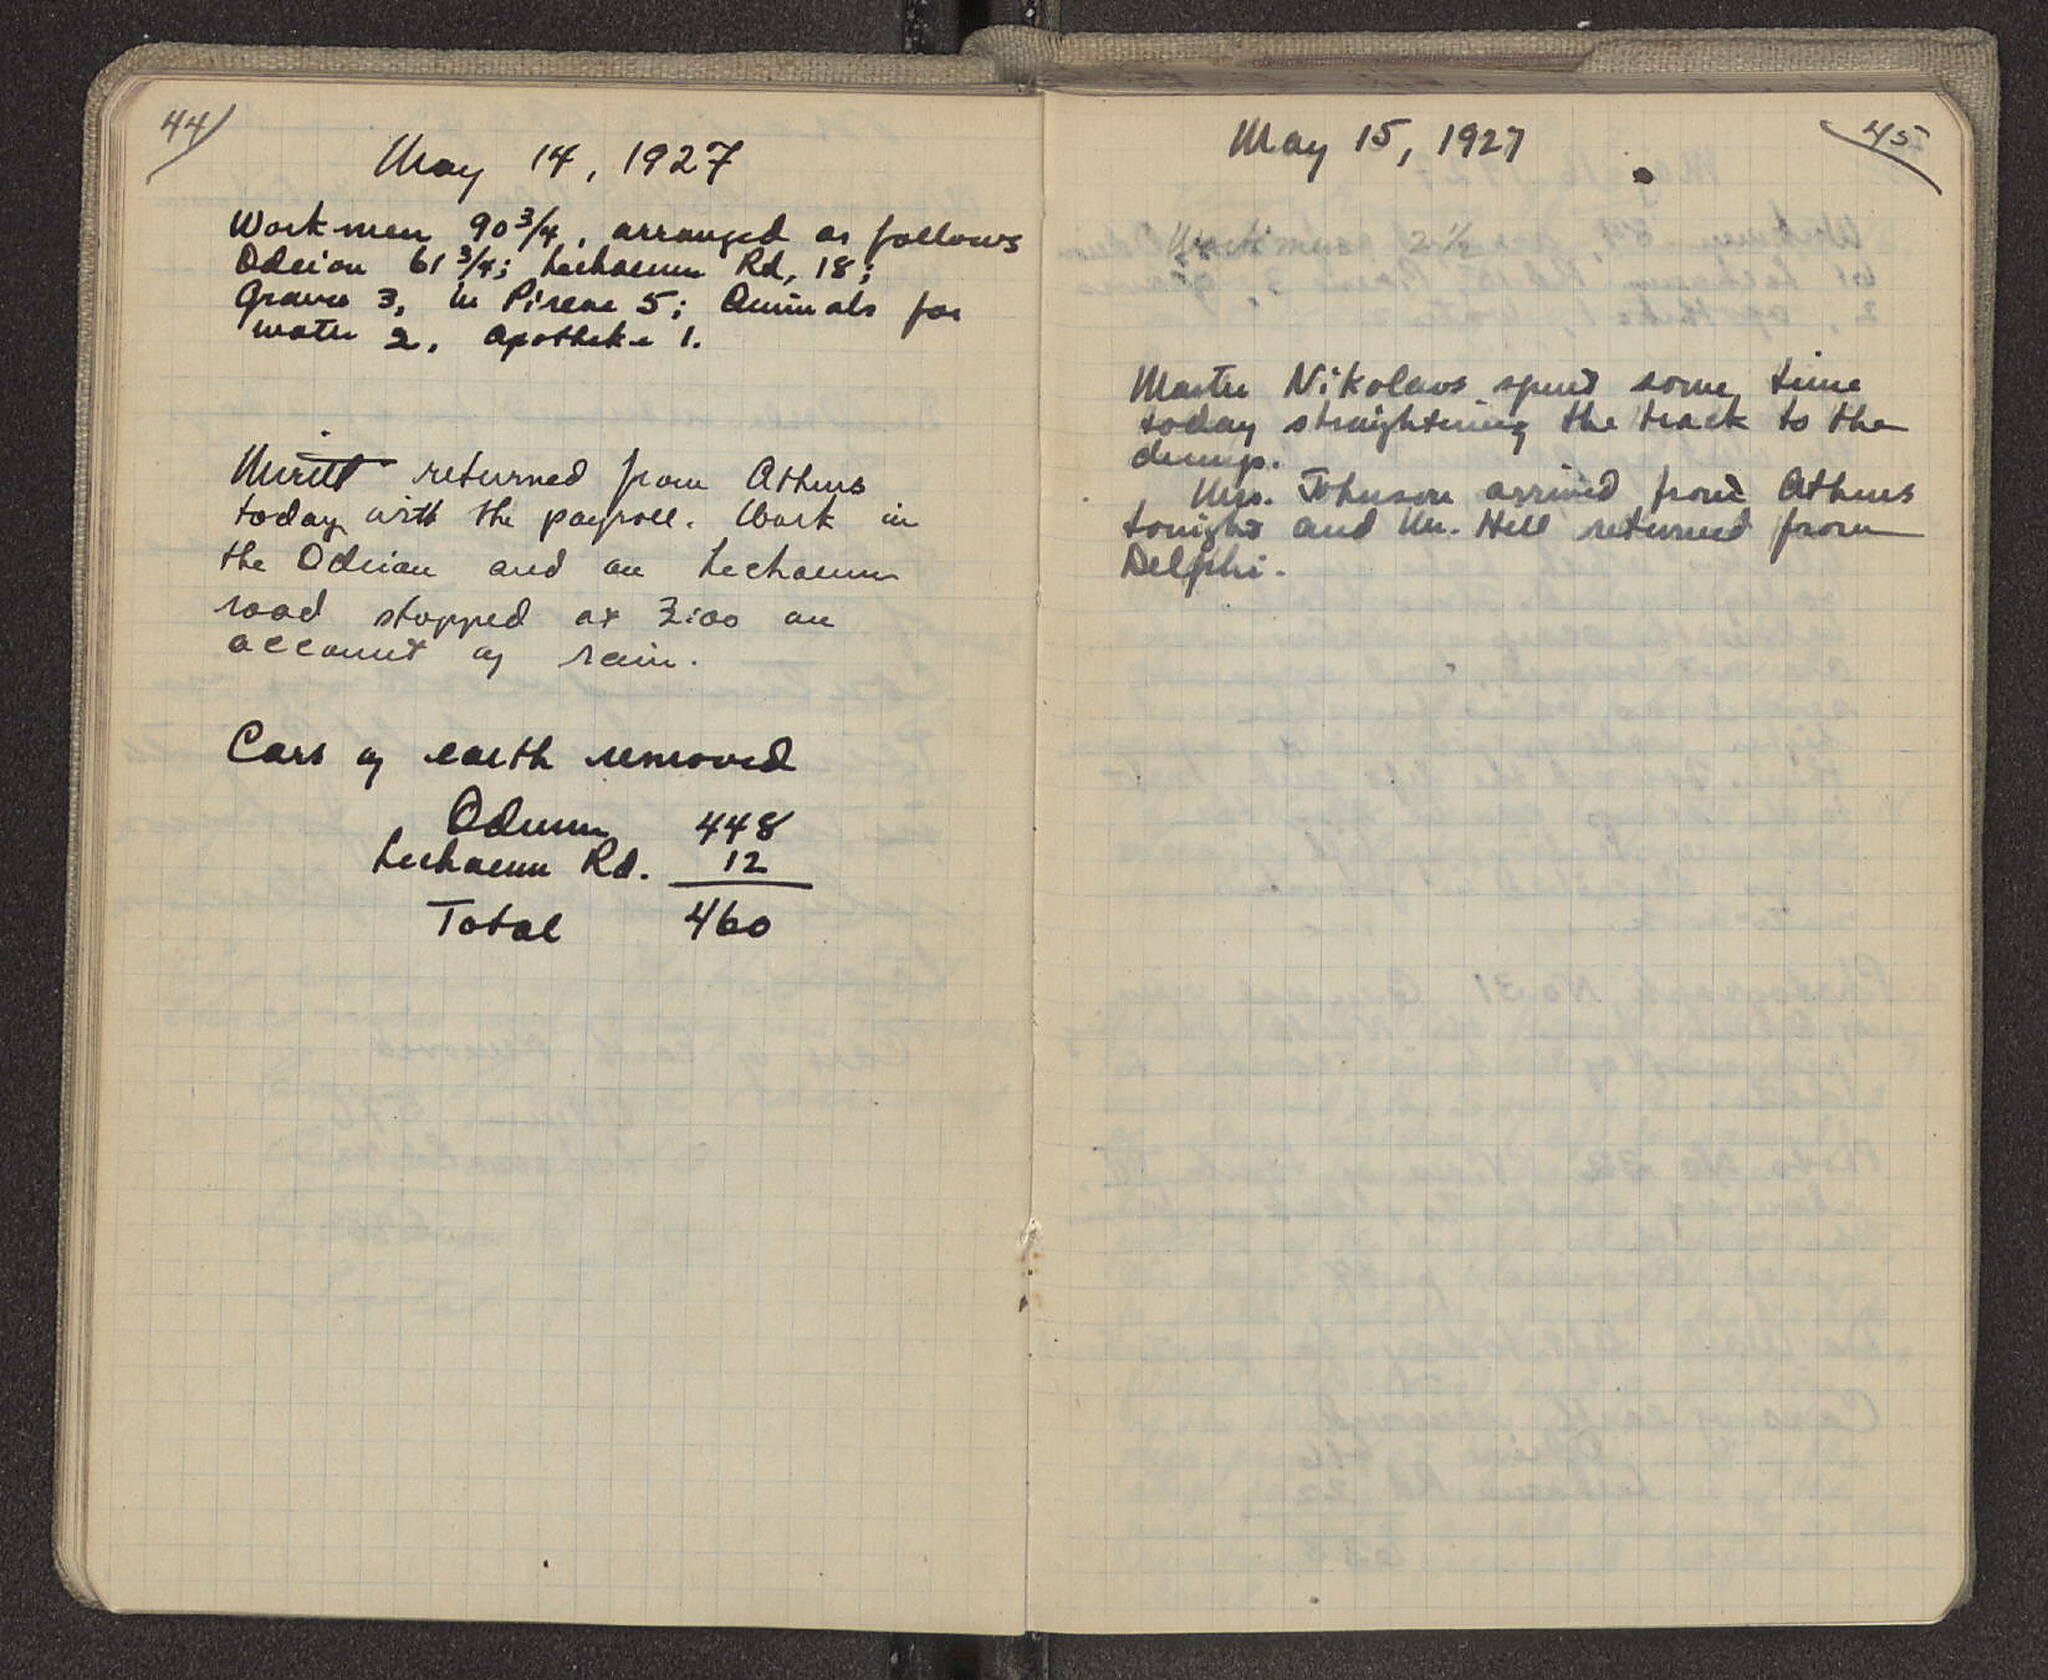 44
May 14, 1927
Workmen 90 3/4, arranged as follows
Odeion 61 3/4; Lechaeum Rd, 18;
Graves 3, In Pirene 5; Animals for
water 2, Apotheke 1.
Meritt returned from Athens
today with the payroll. Work in
the Odeion and on Lechaeum
road stopped at 3:00 on
account of rain.
Cars of earth removed
Odeum 448
Lechaeum Rd. 12
Total 460
45
May 15, 1927
Workmen 2 1/2
Master Nikolaos spent some time
today straightening the track to the
dump.
Mrs. Johnson arrived from Athens
tonight and Mr. Hill returned from
Delphi.